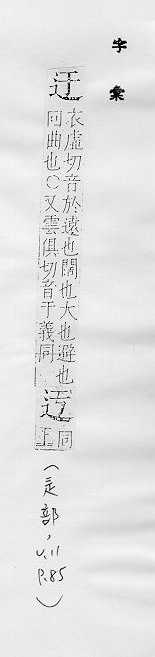 字彙
迂
衣虛切音於遠也闊也大也避也
回曲也○又雲俱切音于義同
迃
同
上
(辵部,
V.11
P.85
)